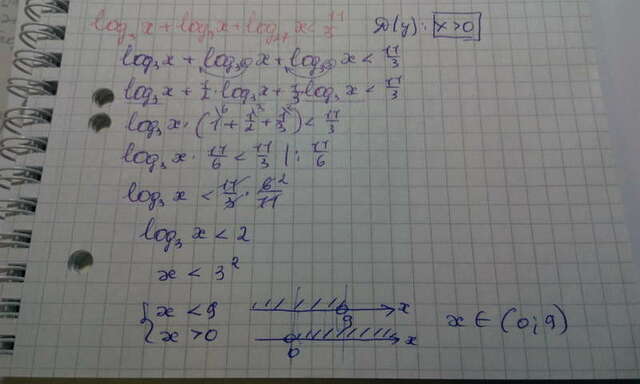 log₃ x + log₉ x + log₂₇ x < 11/3   D(y): x>0
log₃ x + log₃² x + log₃³ x < 11/3
log₃ x + 1/2 · log₃ x + 1/3 log₃ x < 11/3
log₃ x · (1⁶ + 1/2³ + 1/3²) < 11/3
log₃ x · 11/6 < 11/3 | : 11/6
log₃ x < 11/3 · 6²/11
log₃ x < 2
x < 3²
{ x < 9   9   x
{ x > 0   0   x
x ∈ (0; 9)